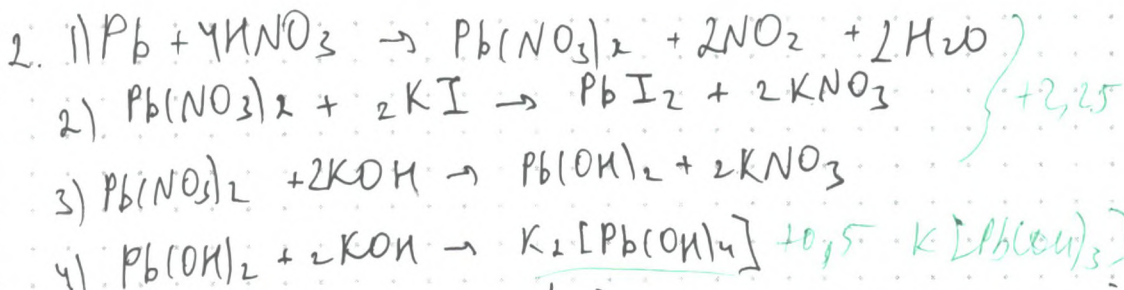 2. 1) Pb + 4HNO3 → Pb(NO3)2 + 2NO2 + 2H2O
2) Pb(NO3)2 + 2KI → PbI2 + 2KNO3 +2,25
3) Pb(NO3)2 + 2KOH → Pb(OH)2 + 2KNO3
4) Pb(OH)2 + 2KOH → K2[Pb(OH)4] +0,5 K[Pb(OH)3]